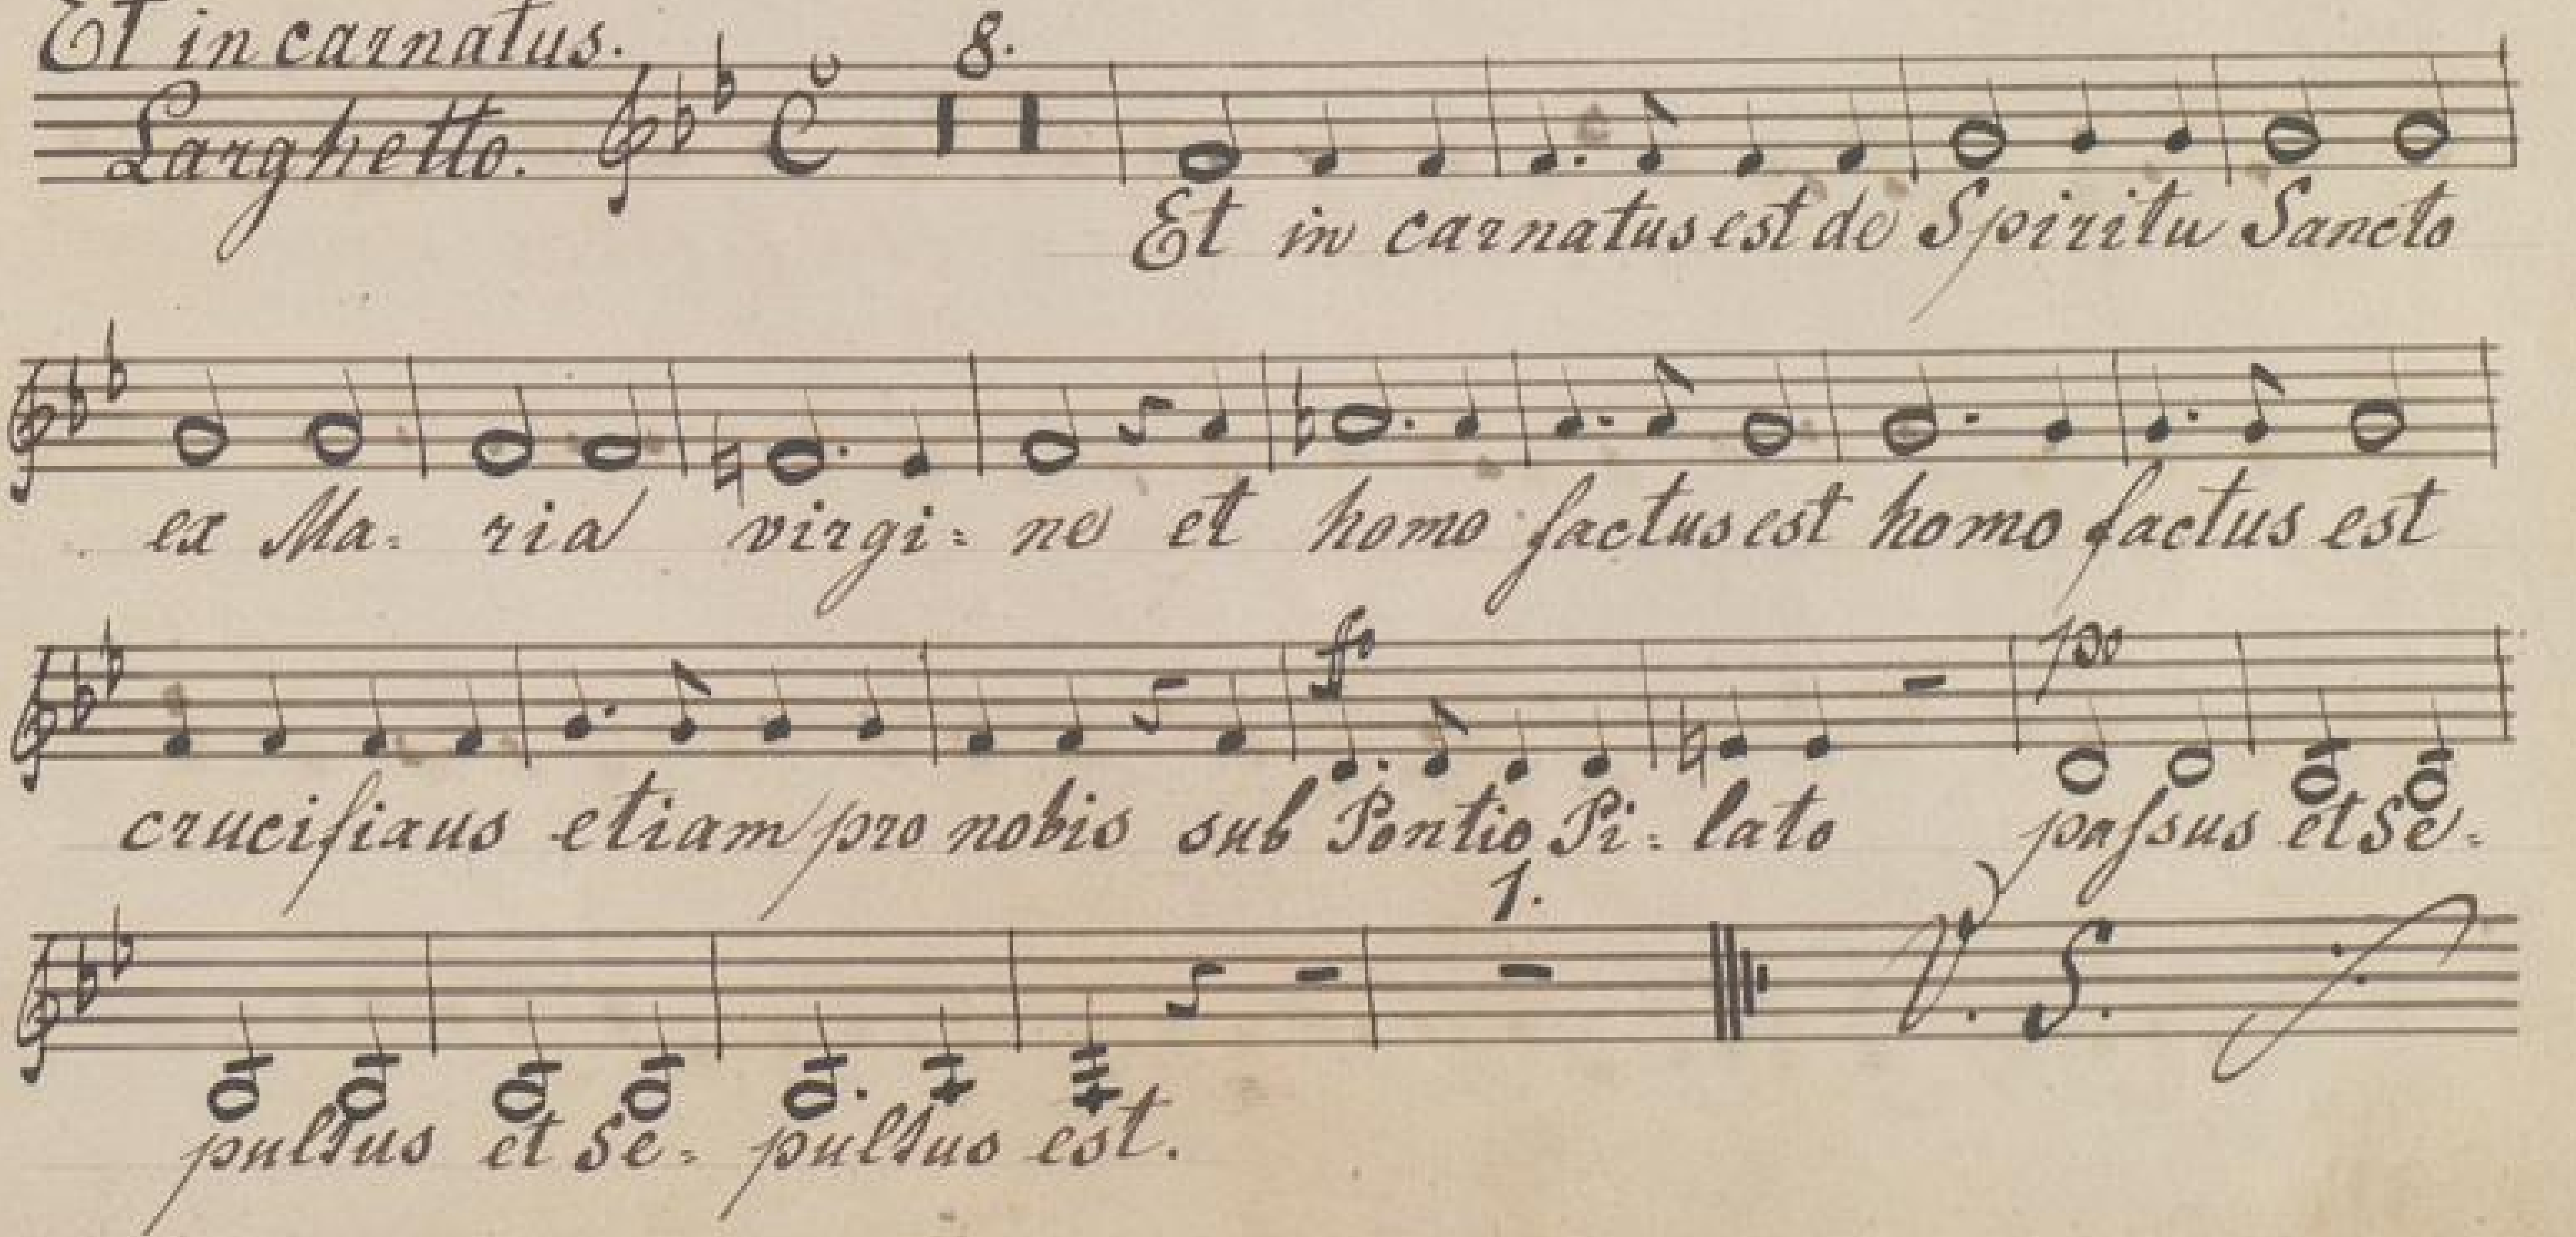 Et in carnatus.
8.
Larghetto.
Et in carnatus est de Spiritu Sancto
ex Ma- ria virgi= ne et homo factus est homo factus est
ffo
po
crucifixus etiam pro nobis sub Pontio Pi= lato passus et Se=
1.
V. S.
pultus et Se= pultus est.